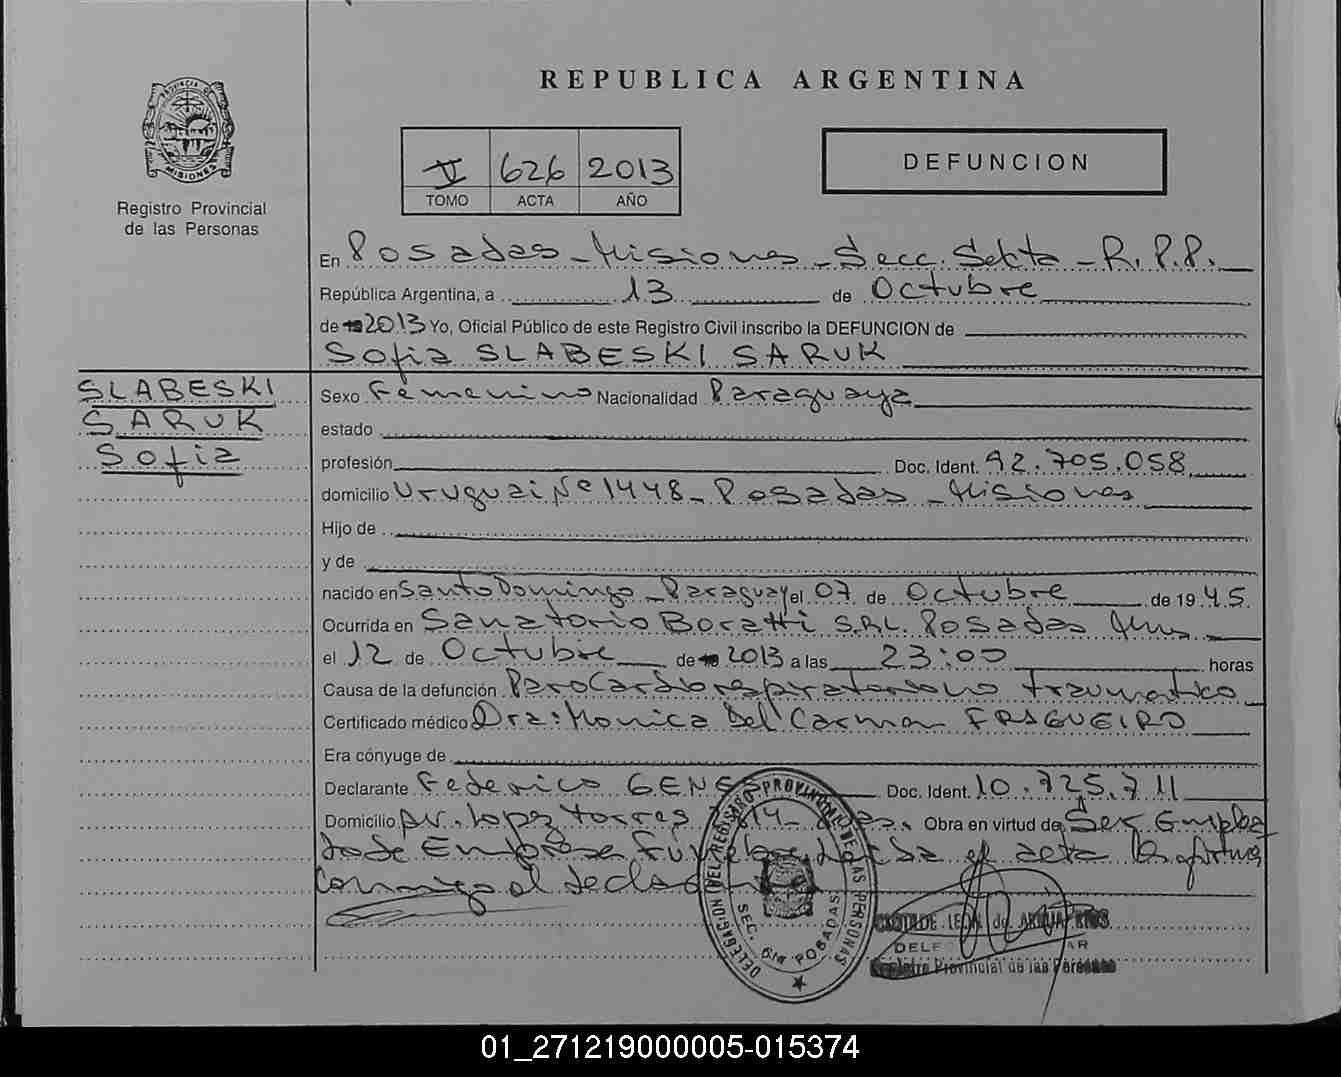 REPUBLICA ARGENTINA
PROVINCIA DE MISIONES
Registro Provincial
de las Personas
II 626 2013
TOMO ACTA AÑO
DEFUNCION
En Posadas - Misiones - Secc. Sexta - R.P.P.
República Argentina, a 13 de Octubre
de 19 2013 Yo, Oficial Público de este Registro Civil inscribo la DEFUNCION de
Sofia SLABESKI SARUK
SLABESKI
SARUK
Sofia
Sexo Femenino Nacionalidad Paraguaya
estado
profesión Doc. Ident. 92.705.058
domicilio Uruguai Nº 1448 - Posadas - Misiones
Hijo de
y de
nacido en Santo Domingo - Paraguay el 07 de Octubre de 1945.
Ocurrida en Sanatorio Boratti S.R.L. Posadas Mnes
el 12 de Octubre de 19 2013 a las 23:00 horas
Causa de la defunción Paro Cardiorespiratorio no traumatico
Certificado médico Dra: Monica Del Carmen FRAGUEIRO
Era cónyuge de
Declarante Federico GENES Doc. Ident. 10.725.711
Domicilio Av. Lopez Torres Obra en virtud de Ser Emplea
do de Empresa Funebre. Leida el acta la firma
conmigo el declarante
DELEGACION DEL REGISTRO PROVINCIAL DE LAS PERSONAS
SEC. 6ta POSADAS
CLOTILDE LEON de ARAUJA RIOS
Registro Provincial de las Personas
01_271219000005-015374